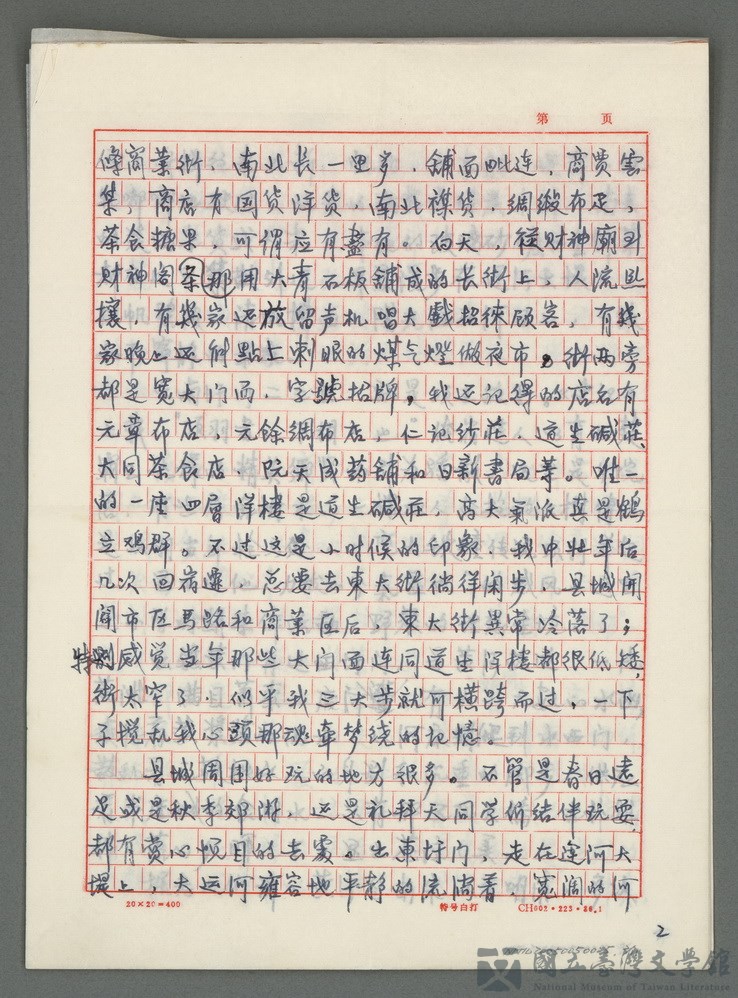 第 页
條商業街，南北长一里多，舖面毗连，商贾雲
集，商店有国货洋货，南北襍货，绸缎布疋，
茶食糖果，可谓应有盡有。白天，從财神廟到
财神阁条那用大青石板舖成的长街上，人流熙
攘，有幾家还放留声机唱大戲招徠顾客，有幾
家晚上还付點上刺眼的煤气燈做夜市。街两旁
都是寬大门面，字號招牌，我还记得的店名有
元章布店，元馀绸布店，仁记纱莊，道生碱莊，
大同茶食店，阮天成药舖和日新書局等。唯一
的一座四層洋楼是道生碱莊，高大氣派真是鹤
立鸡群。不过这是小时候的印象，我中壮年后
几次回宿遷，总要去東大街徜徉闲步，县城開
闢市区马路和商業区后，東大街異常冷落了；
特别感觉当年那些大门面连同道生洋楼都很低矮，
街太窄了，似乎我三大步就可横跨而过，一下
子搅乱我心頭那魂牵梦绕的记憶。
县城周围好玩的地方很多。不管是春日遠
足或是秋季郊游，还是礼拜天同学们结伴玩耍，
都有赏心悦目的去處。出東圩门，走在运河大
堤上，大运河雍容地平静的流淌着，寬阔的河
20×20=400
特号白打
CH002·223·86.1
2
國立臺灣文學館
National Museum of Taiwan Literature